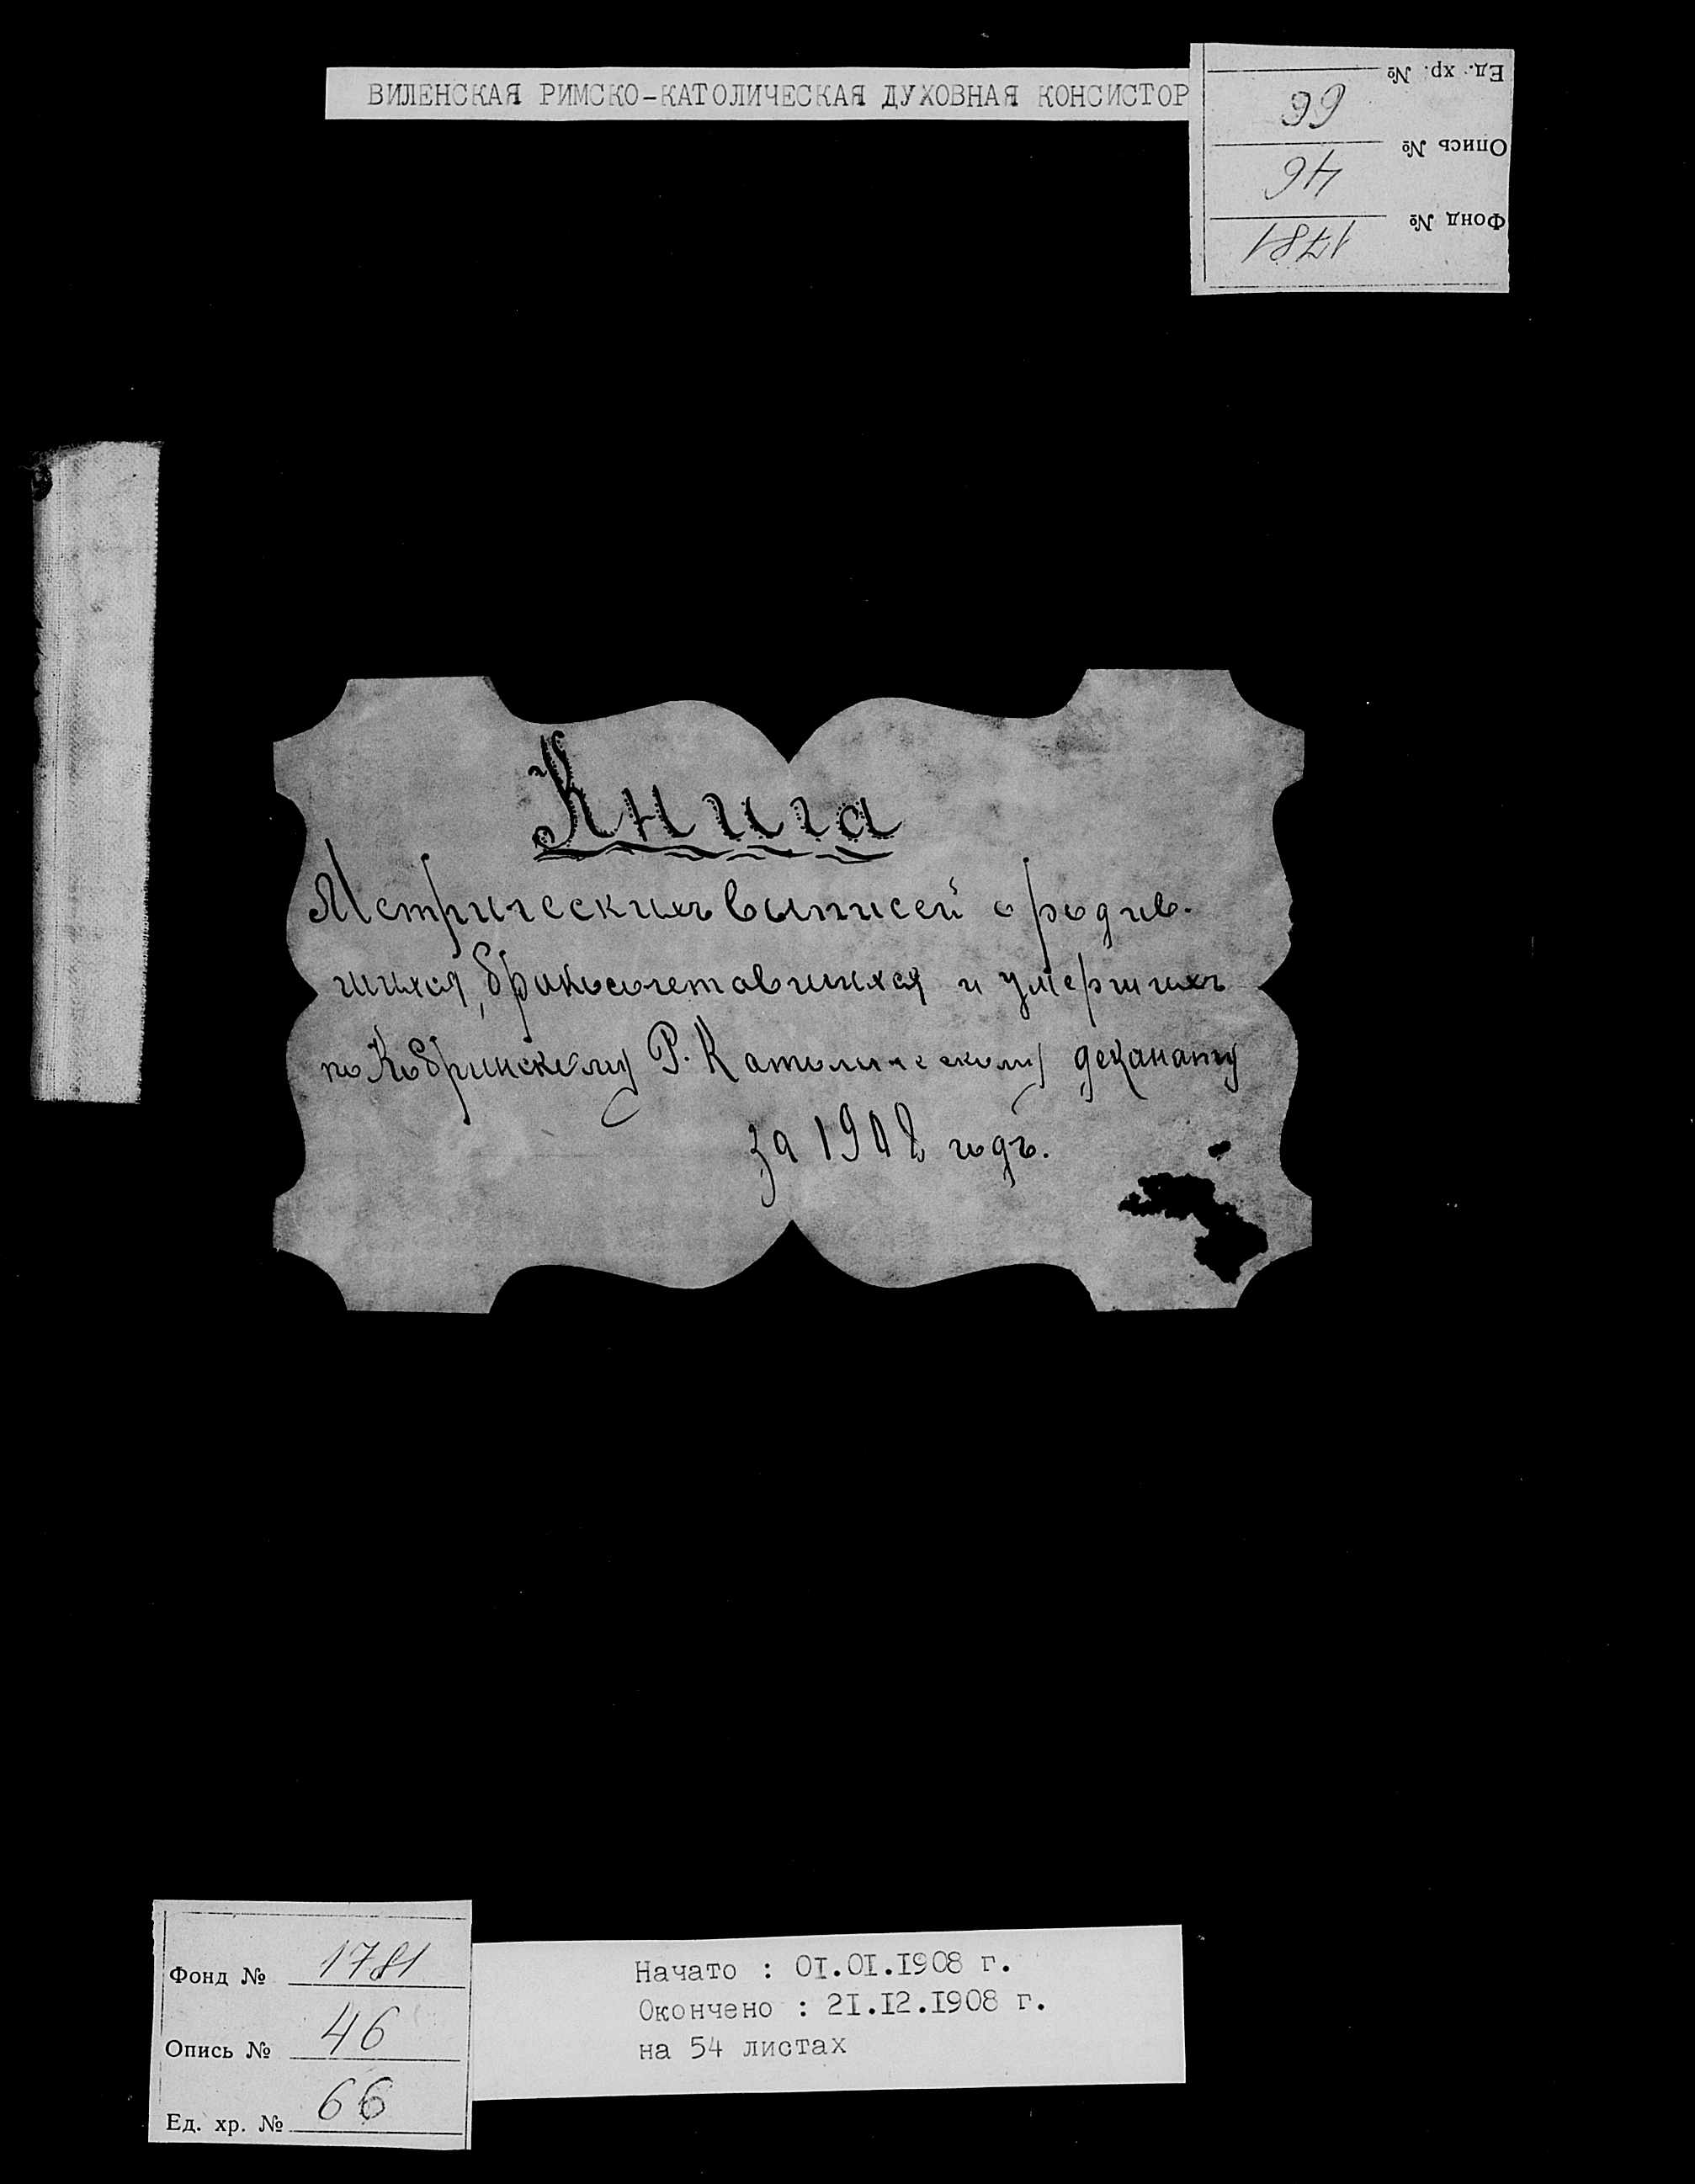 ВИЛЕНСКАЯ РИМСКО-КАТОЛИЧЕСКАЯ ДУХОВНАЯ КОНСИСТОР
Фонд № 1781
Опись № 46
Ед. хр. № 66
Книга
Метрическихъ выписей о родив-
шихся, бракосочетавшихся и умершихъ
по Кобринскому Р. Католическому деканату
за 1908 годъ.
Фонд № 1781
Опись № 46
Ед. хр. № 66
Начато : 01.01.1908 г.
Окончено : 21.12.1908 г.
на 54 листах